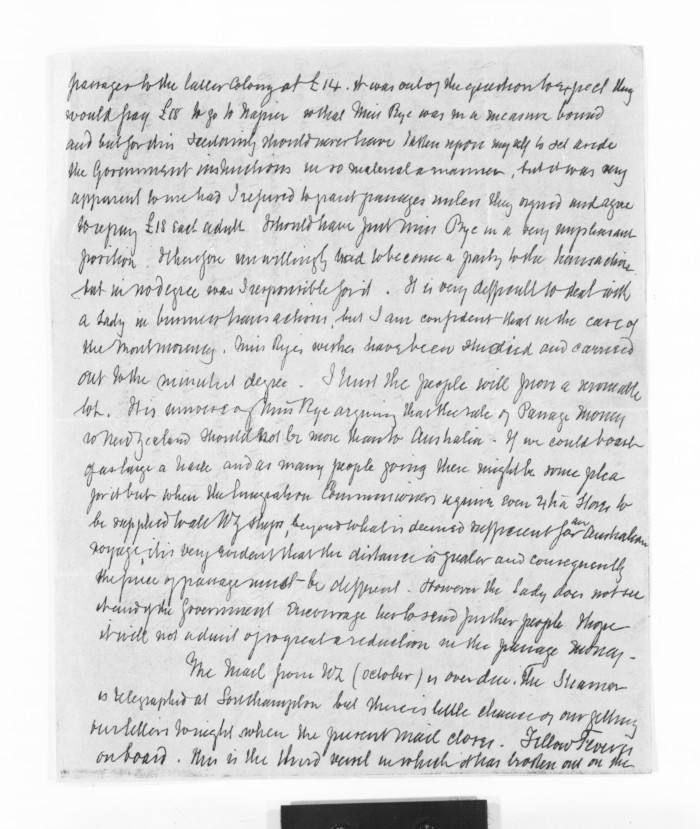 passages to the latter Colony at £14. It was out of the question to expect they
would pay £18 to go to Napier so that Miss Rye was in a measure bound
and but for this I certainly should never have taken upon myself to set aside
the Government instructions in so material a manner, but it was very
apparent to me had I refused to grant passages unless they signed and agree
to repay £18 each adult I should have put Miss Rye in a very unpleasant
position. I therefore unwillingly had to become a party to the transaction
but in no degree was I responsible for it. It is very difficult to deal with
a Lady in business transactions, but I am confident that in the case of
the Montmorency. Miss Ryes wishes have been studied and carried
out to the minutest degree. I trust the people will prove a serviceable
lot. It is of Miss Rye arguing that the rate of Passage money
to New Zealand should not be more than to Australia. If we could boast
of as large a trade and as many people going there might be some plea
for it but when the Emigration Commissioners require even extra Stores to
be supplied to all NZ ships, beyond what is deemed sufficient for an Australian
voyage, it is very evident that the distance is greater and consequently
the price of passage must be different. However the Lady does not see
it and if the Government encourage her to send further people I hope
it will not admit of so great a reduction in the passage money.
The Mail from NZ (October) is over due. The Steamer
is telegraphed at Southampton but there is little chance of our getting
our letters tonight when the present mail closes. Yellow Fever is
on board. This is the third vessel in which it has broken out on the